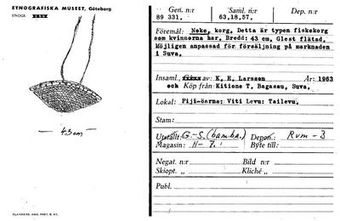 ETNOGRAFISKA MUSEET, Göteborg
43cm
Gen. nr: Saml. nr: Dep. nr:
89 331. 63.18.57.
Föremål: Noke, korg. Detta är typen fiskekorg
som kvinnorna har. Bredd: 43 cm. Glest flätad.
Möjligen anpassad för försäljning på marknaden
i Suva.
Insaml. av: K. E. Larsson År: 1963
och Köp från Kitione T, Bagasau, Suva.
Lokal: Fiji-öarna: Viti Levu: Tailevu.
Stam:
G-S. (bamba.) Depon. Rum-3
Magasin: 11-7. Byte till:
Negat. nr: Bild nr:
Skiopt. Kliché
Publ.